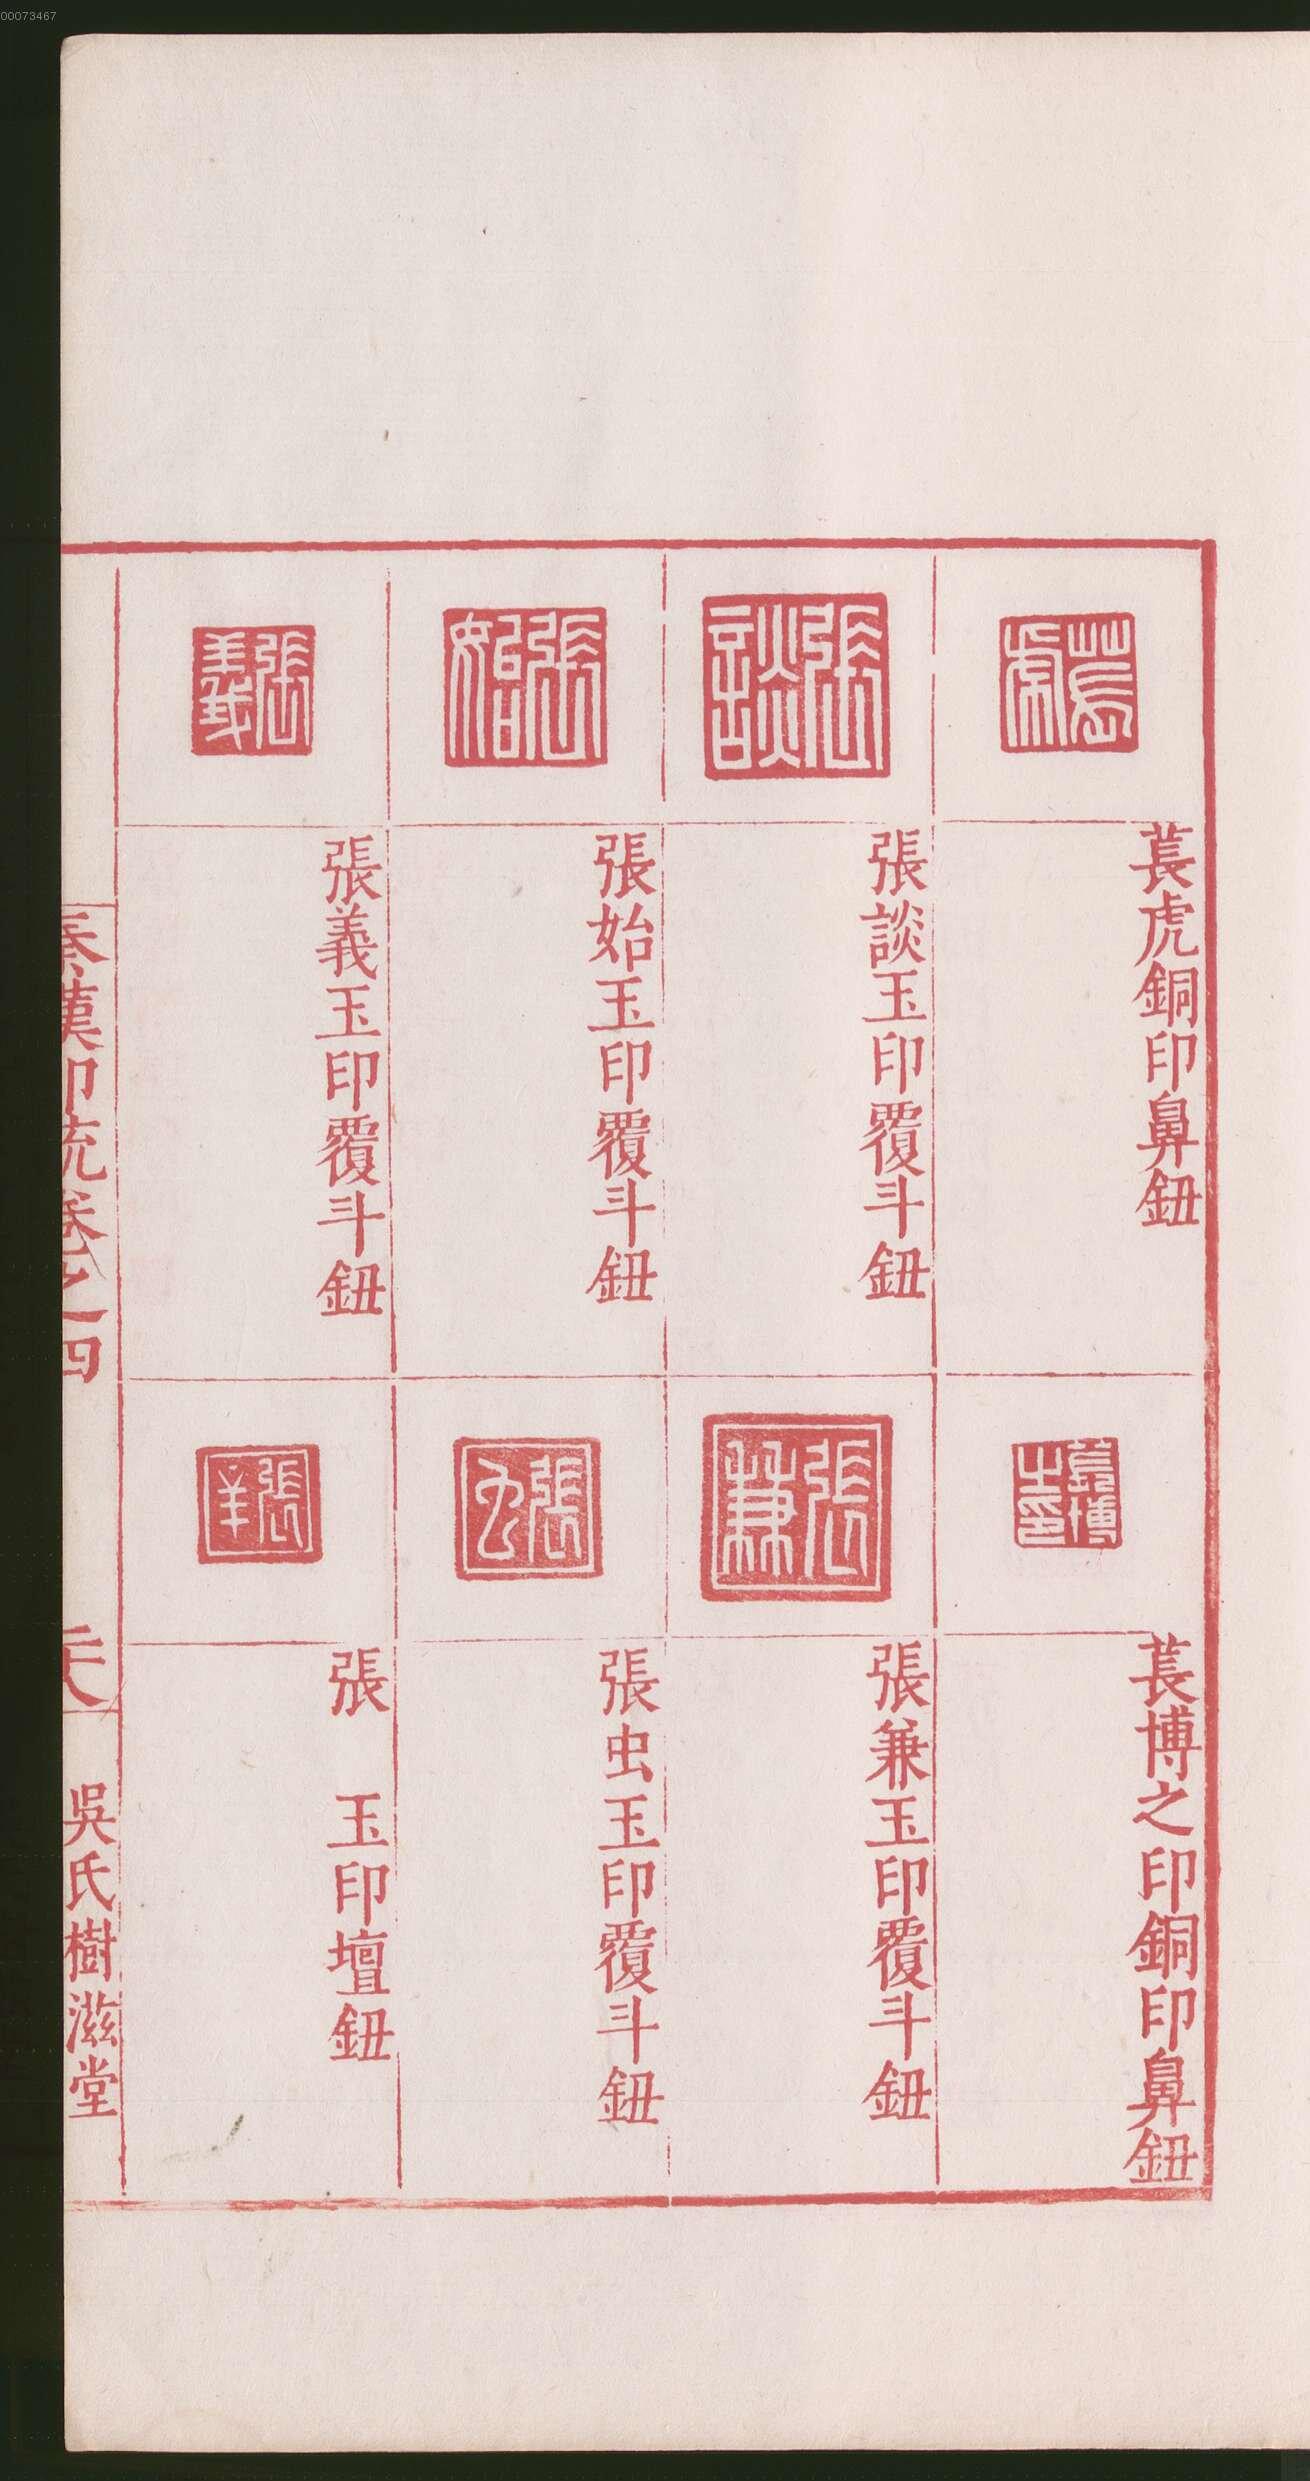 00073467
萇虎銅印鼻鈕
張談玉印覆斗鈕
張始玉印覆斗鈕
張義玉印覆斗鈕
萇博之印銅印鼻鈕
張兼玉印覆斗鈕
張虫玉印覆斗鈕
張　玉印壇鈕
秦漢印統卷之四
吳氏樹滋堂